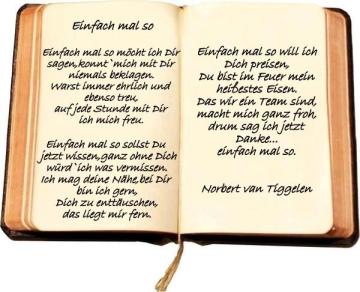 Einfach mal so
Einfach mal so möcht ich Dir
sagen, konnt`mich mit Dir
niemals beklagen.
Warst immer ehrlich und
ebenso treu,
auf jede Stunde mit Dir
ich mich freu.
Einfach mal so sollst Du
jetzt wissen, ganz ohne Dich
würd`ich was vermissen.
Ich mag deine Nähe, bei Dir
bin ich gern,
Dich zu enttäuschen,
das liegt mir fern.
Einfach mal so will ich
Dich preisen,
Du bist im Feuer mein
heißestes Eisen.
Das wir ein Team sind,
macht mich ganz froh,
drum sag ich jetzt
Danke...
einfach mal so.
Norbert van Tiggelen